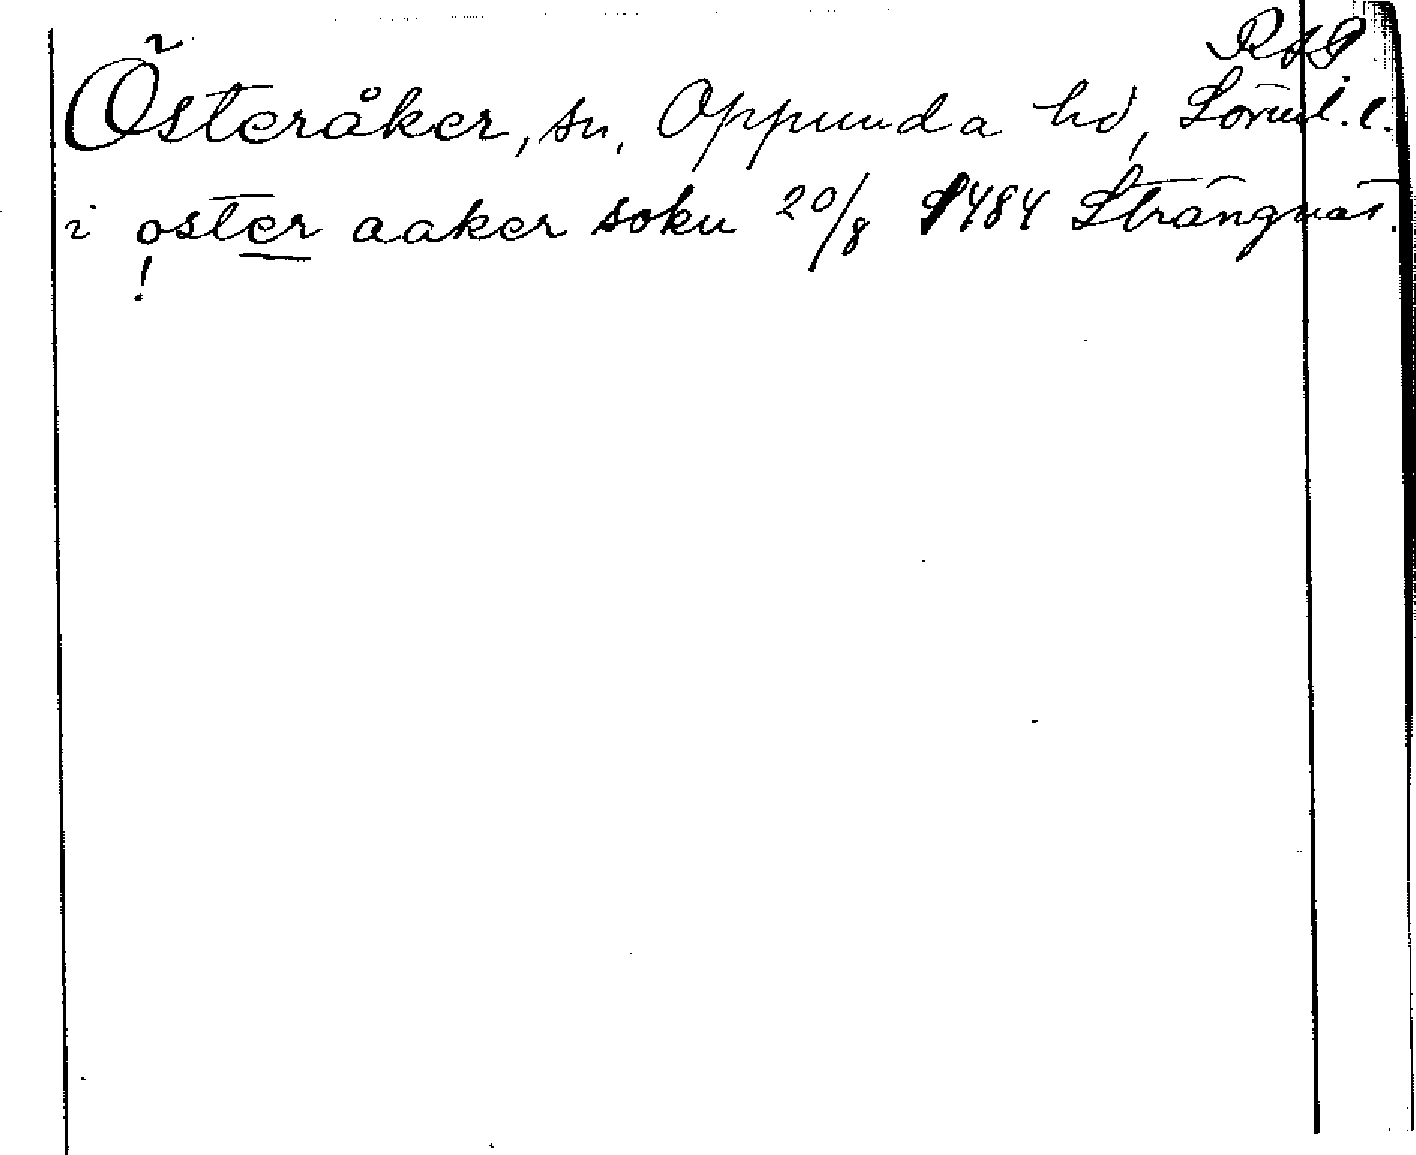 RAP
Österåker, sn, Oppunda hd, Sörml. l.
i oster aaker sokn 20/8 1484 Strängnäs.
!